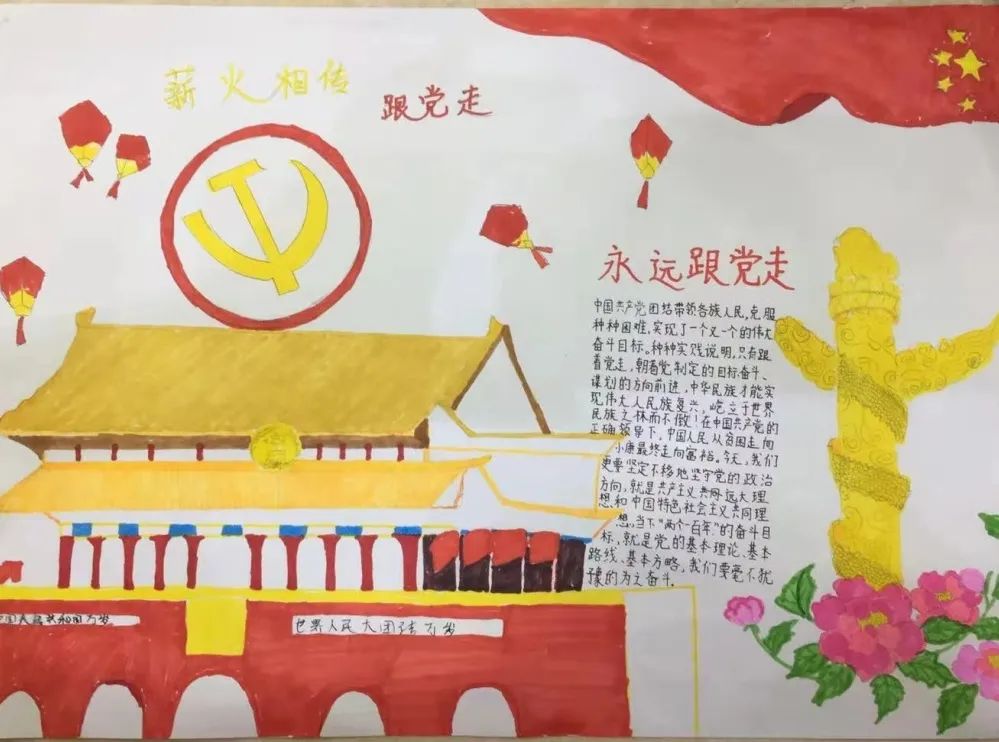 薪火相传
跟党走
永远跟党走
中国共产党团结带领各族人民,克服
种种困难,实现了一个又一个的伟大
奋斗目标。种种实践说明,只有跟
着党走,朝着党制定的目标奋斗、
谋划的方向前进,中华民族才能实
现伟大人民族复兴,屹立于世界
民族之林而不倒!在中国共产党的
正确领导下,中国人民从贫困走向
小康最终走向富裕。今天,我们
更要坚定不移地坚守党的政治
方向,就是共产主义共同远大理
想和中国特色社会主义共同理
想,当下"两个一百年"的奋斗目
标,就是党的基本理论、基本
路线、基本方略,我们要毫不犹
豫的为之奋斗。
中国人民共和国万岁
世界人民大团结万岁